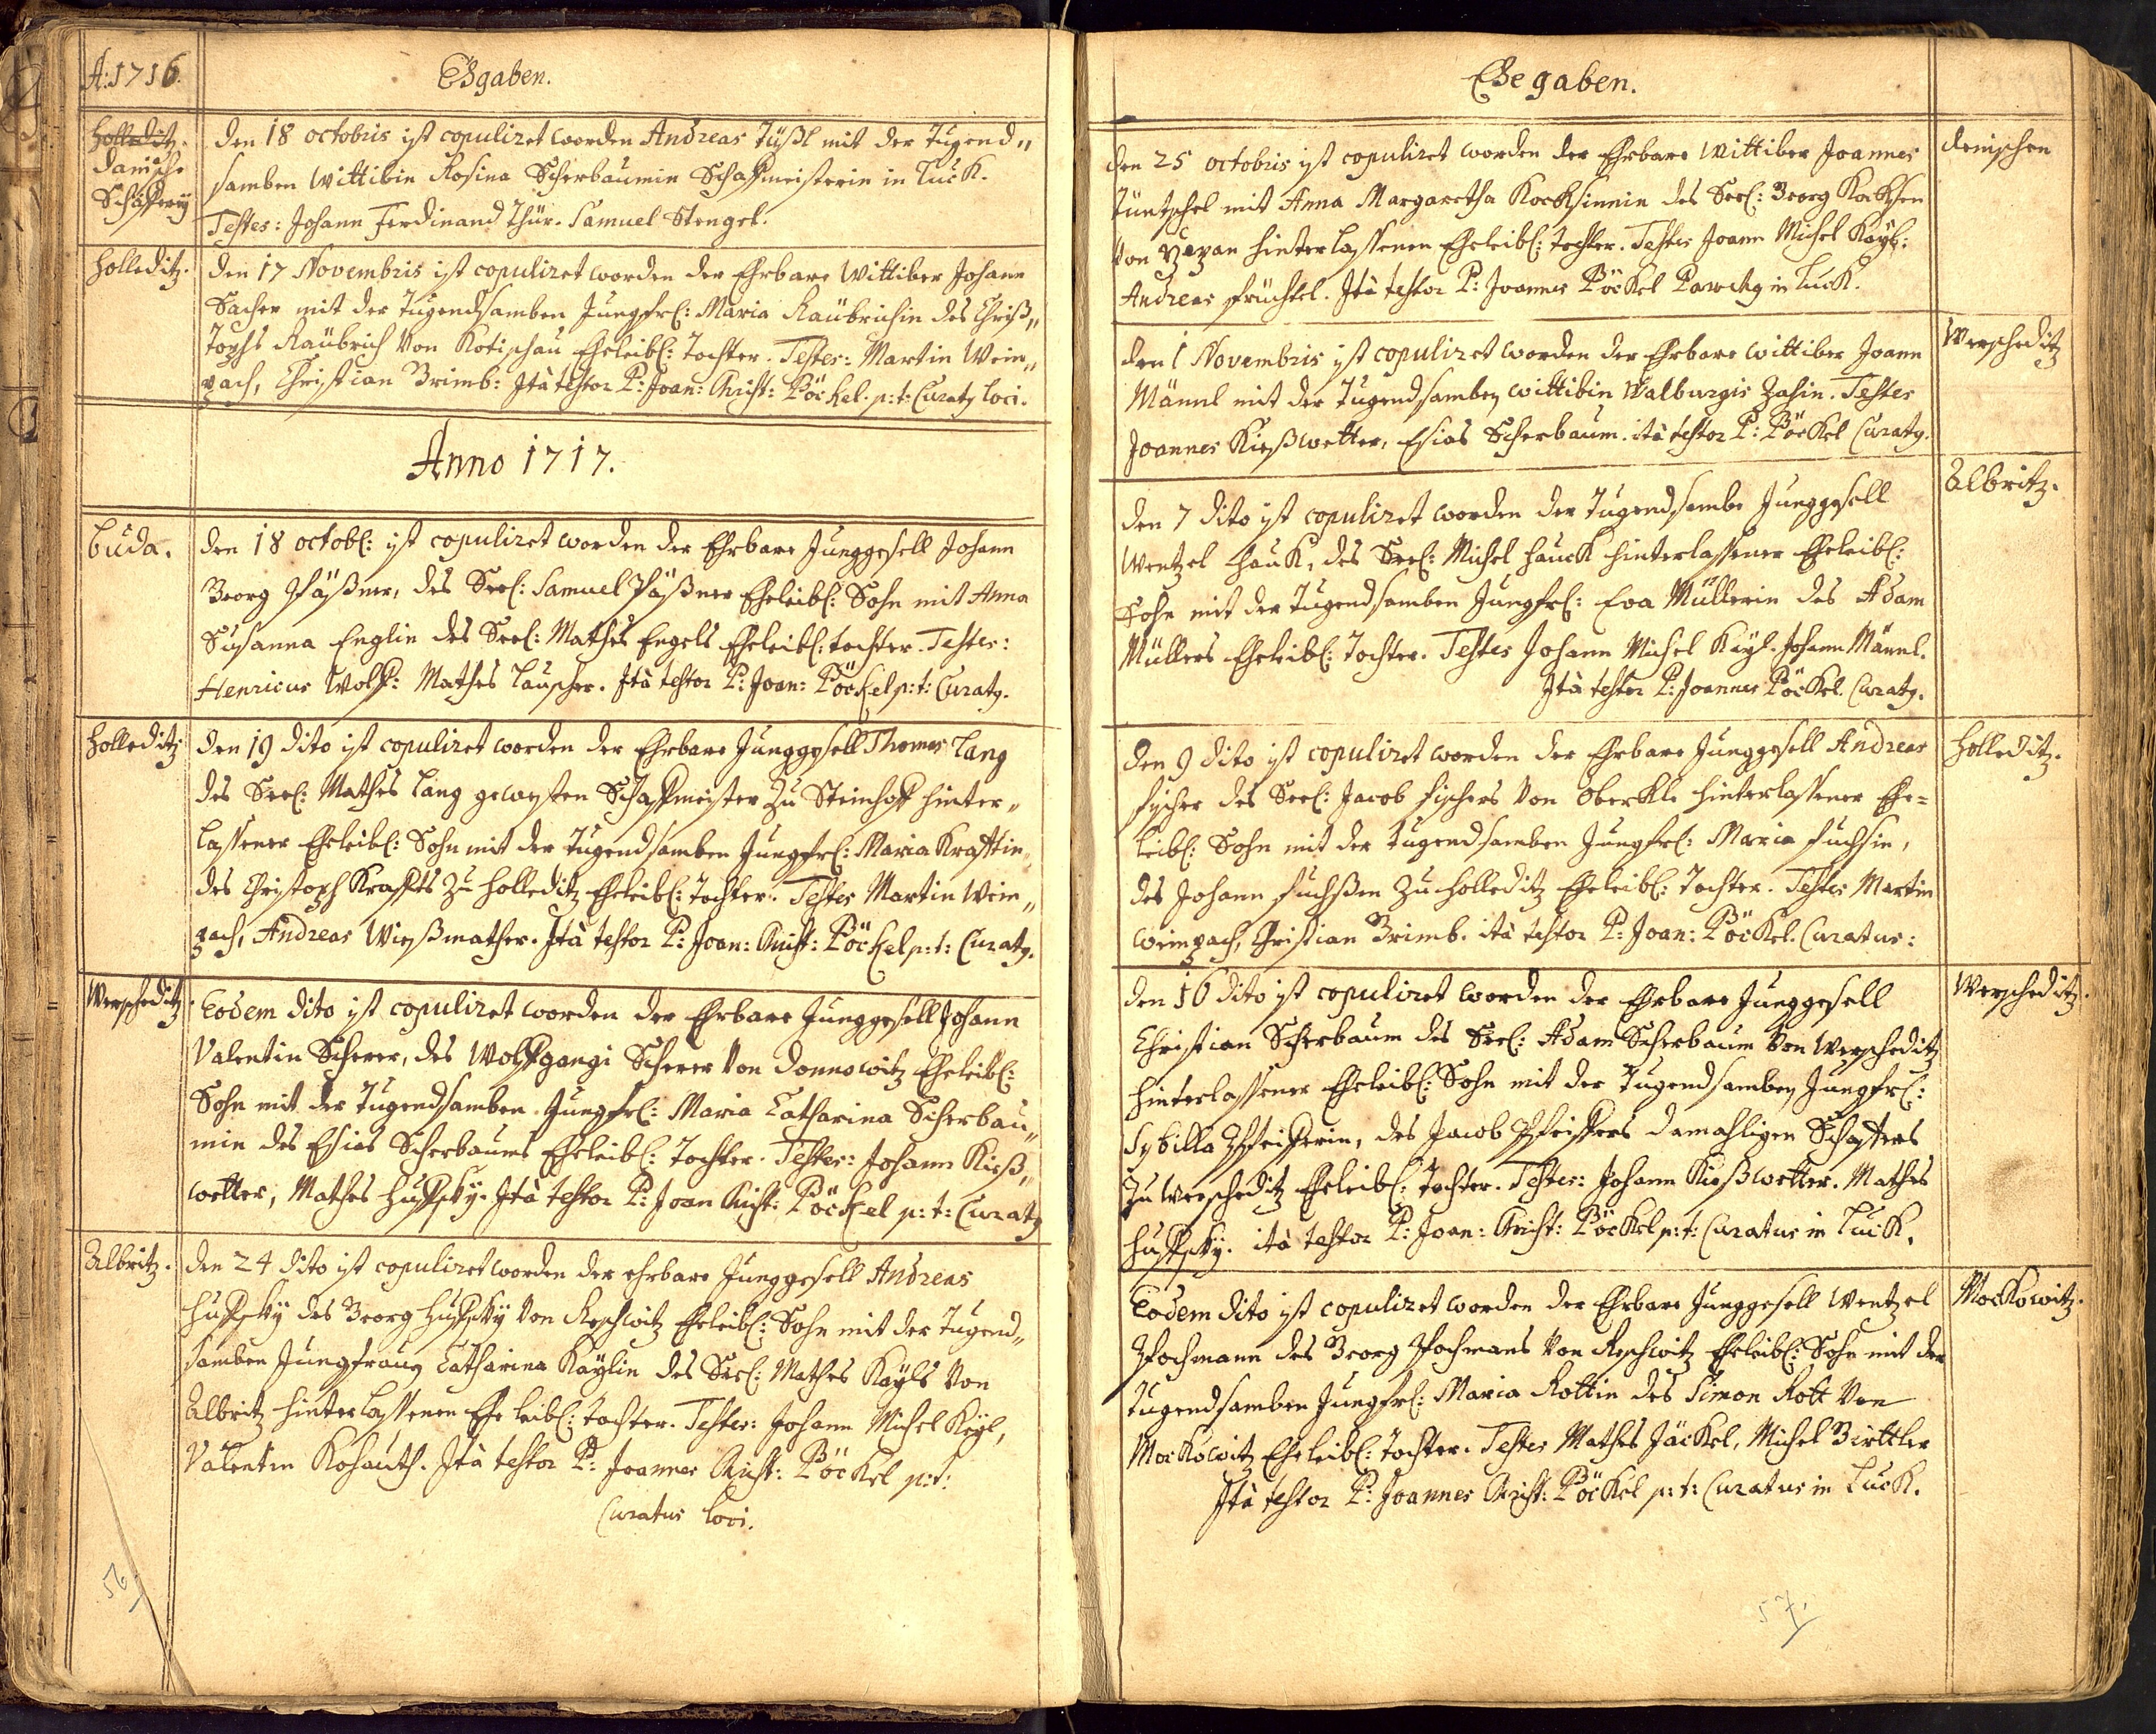 A: 1716.
Ehgaben.
Holleditz.
Danische
Schäfferey
Den 18 octobris ist copuliret worden Andreas Tüßl mit der Tugend„
samben Wittibin Rosina Scherbaumin Schaffmeisterin in Luck.
Testes: Johann Ferdinand Thür. Samuel Stengel.
Holleditz.
Den 17 Novembris ist copuliret worden der Ehrbare Wittiber Johann
Sacher mit der Tugendsamben Jungfrl: Maria Raübrichin des Chriß„
Tophs Raübrich von Kotischau Eheleibl: Tochter. Testes: Martin Wein„
zach, Christian Brimb: Ità testor P: Joan: Christ: Pöckel. p:t: Curatg loci.
Anno 1717.
Buda.
Den 18 octobl: ist copuliret worden der Ehrbare Junggesell Johann
Georg Päßner, des Seel: Samuel Päßner Eheleibl: Sohn mit Anna
Susanna Englin des Seel: Mathes Engels Eheleibl: tochter. Testes:
Henricus Wolff: Mathes Lauscher. Ità testor P: Joan: Pöckel p:t: Curatg.
Holleditz
Den 19 dito ist copuliret worden der Ehrbare Junggesell Thomas Lang
des Seel: Mathes Lang gewesten Schaffmeister zu Steinhoff hinter„
lassener Eheleibl: Sohn mit der Tugendsamben Jungfrl: Maria Krafftin
des Christoph Kraffts zu Holleditz Eheleibl: Tochter. Testes Martin Wein„
zach, Andreas Wießmather. Ità testor P: Joan: Christ: Pöckel p:t: Curatg.
Werscheditz
Eodem dito ist copuliret worden der Ehrbare Junggesell Johann
Valentin Scherer, des Wolffgangi Scherer von Donnowitz Eheleibl:
Sohn mit der Tugendsamben Jungfrl: Maria Catharina Scherbau„
min des Esias Scherbaums Eheleibl: Tochter. Testes: Johann Kieß„
wetter, Mathes Hussky. Ità testor P: Joan Christ: Pöckel p:t: Curatg
Albritz.
Den 24 dito ist copuliret worden der ehrbare Junggesell Andreas
Hussky des Georg Hussky von Reschwitz Eheleibl: Sohn mit der Tugend„
samben Jungfrauen Catharina Kaÿlin des Seel: Mathes Kaÿls von
Albritz hinterlassenen Ehe leibl: tochter. Testes: Johann Michel Keÿl,
Valentin Kohauth. Ità testor P: Joannes Christ: Pöckel p:t:
Curatus loci.
56
Ehegaben.
Den 25 octobris ist copuliret worden der Ehrbare Wittiber Joannes
Tüntschel mit Anna Margaretha Kocksinnin des Seel: Georg Kocksen
von hinterlassenen Eheleibl: tochter. Testes Joann Michel Kaÿl:
Andreas früchtel. Ità testor P: Joannes Pöckel Parochg in Luck.
Deinschen
Den 1 Novembris ist copuliret worden der Ehrbare wittiber Joann
Männl mit der Tugendsamben wittibin Walburgis Zahin. Testes
Joannes Kießwetter, Esias Scherbaum. ità testor P: Pöckel Curatg.
Werscheditz
Den 7 dito ist copuliret worden der Tugendsambe Junggesell
Wentzel Hauk, des Seel: Michel Hauck hinterlassener Eheleibl:
Sohn mit der Tugendsamben Jungfrl: Eva Müllerin des Adam
Müllers Eheleibl: Tochter. Testes Johann Michel Kaÿl. Johann Männl.
Ità testor P: Joannes Pöckel. Curatg.
Albritz.
Den 9 dito ist copuliret worden der Ehrbare Junggesell Andreas
fischer des Seel: Jacob fischers von Oberkle hinterlassener Ehe=
leibl: Sohn mit der tugendsamben Jungfrl: Maria fuchsin,
des Johann fuchßen zu Holleditz Eheleibl: Tochter. Testes Martin
Weinzach, Christian Brimb. ità testor P: Joan: Pöckel. Curatus:
Holleditz.
Den 16 dito ist copuliret worden der Ehrbare Junggesell
Christian Scherbaum des Seel: Adam Scherbaum von Werscheditz
hinterlassener Eheleibl: Sohn mit der Tugendsamben Jungfrl:
Sybilla Pfeifferin, des Jacob Pfeiffers damahligen Schaffers
zu Werscheditz Eheleibl: tochter. Testes: Johann Kießwetter. Mathes
Hussky. ità testor P: Joan: Christ: Pöckel p:t: Curatus in Luck.
Werscheditz.
Eodem dito ist copuliret worden der Ehrbare Junggesell Wentzel
Pochmann des Georg Pochmans von Reschwitz Eheleibl: Sohn mit der
Tugendsamben Jungfrl: Maria Rottin des Simon Rott von
Mockowitz Eheleibl: tochter. Testes Mathes Jäckel, Michel Birttler
Ità testor P: Joannes Christ: Pöckel p:t: Curatus in Luck.
Mockowitz.
57.